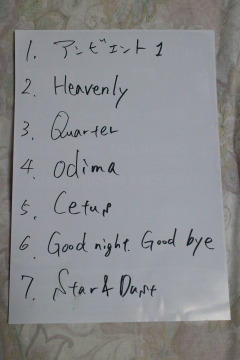 1. アンビエント1
2. Heavenly
3. Quarter
4. odima
5. Cetus
6. Good night. Good bye
7. Star & Dust